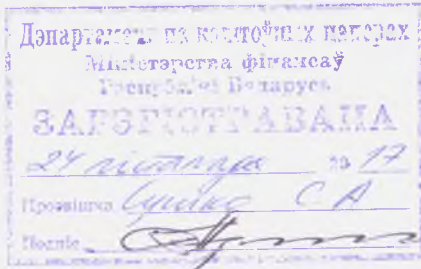 Дэпартамент па каштоўных паперах
Міністэрства фінансаў
Рэспублікі Беларусь
ЗАРЭГІСТРАВАНА
24 лістапада 20 17
Прозвішча С А
Подпіс